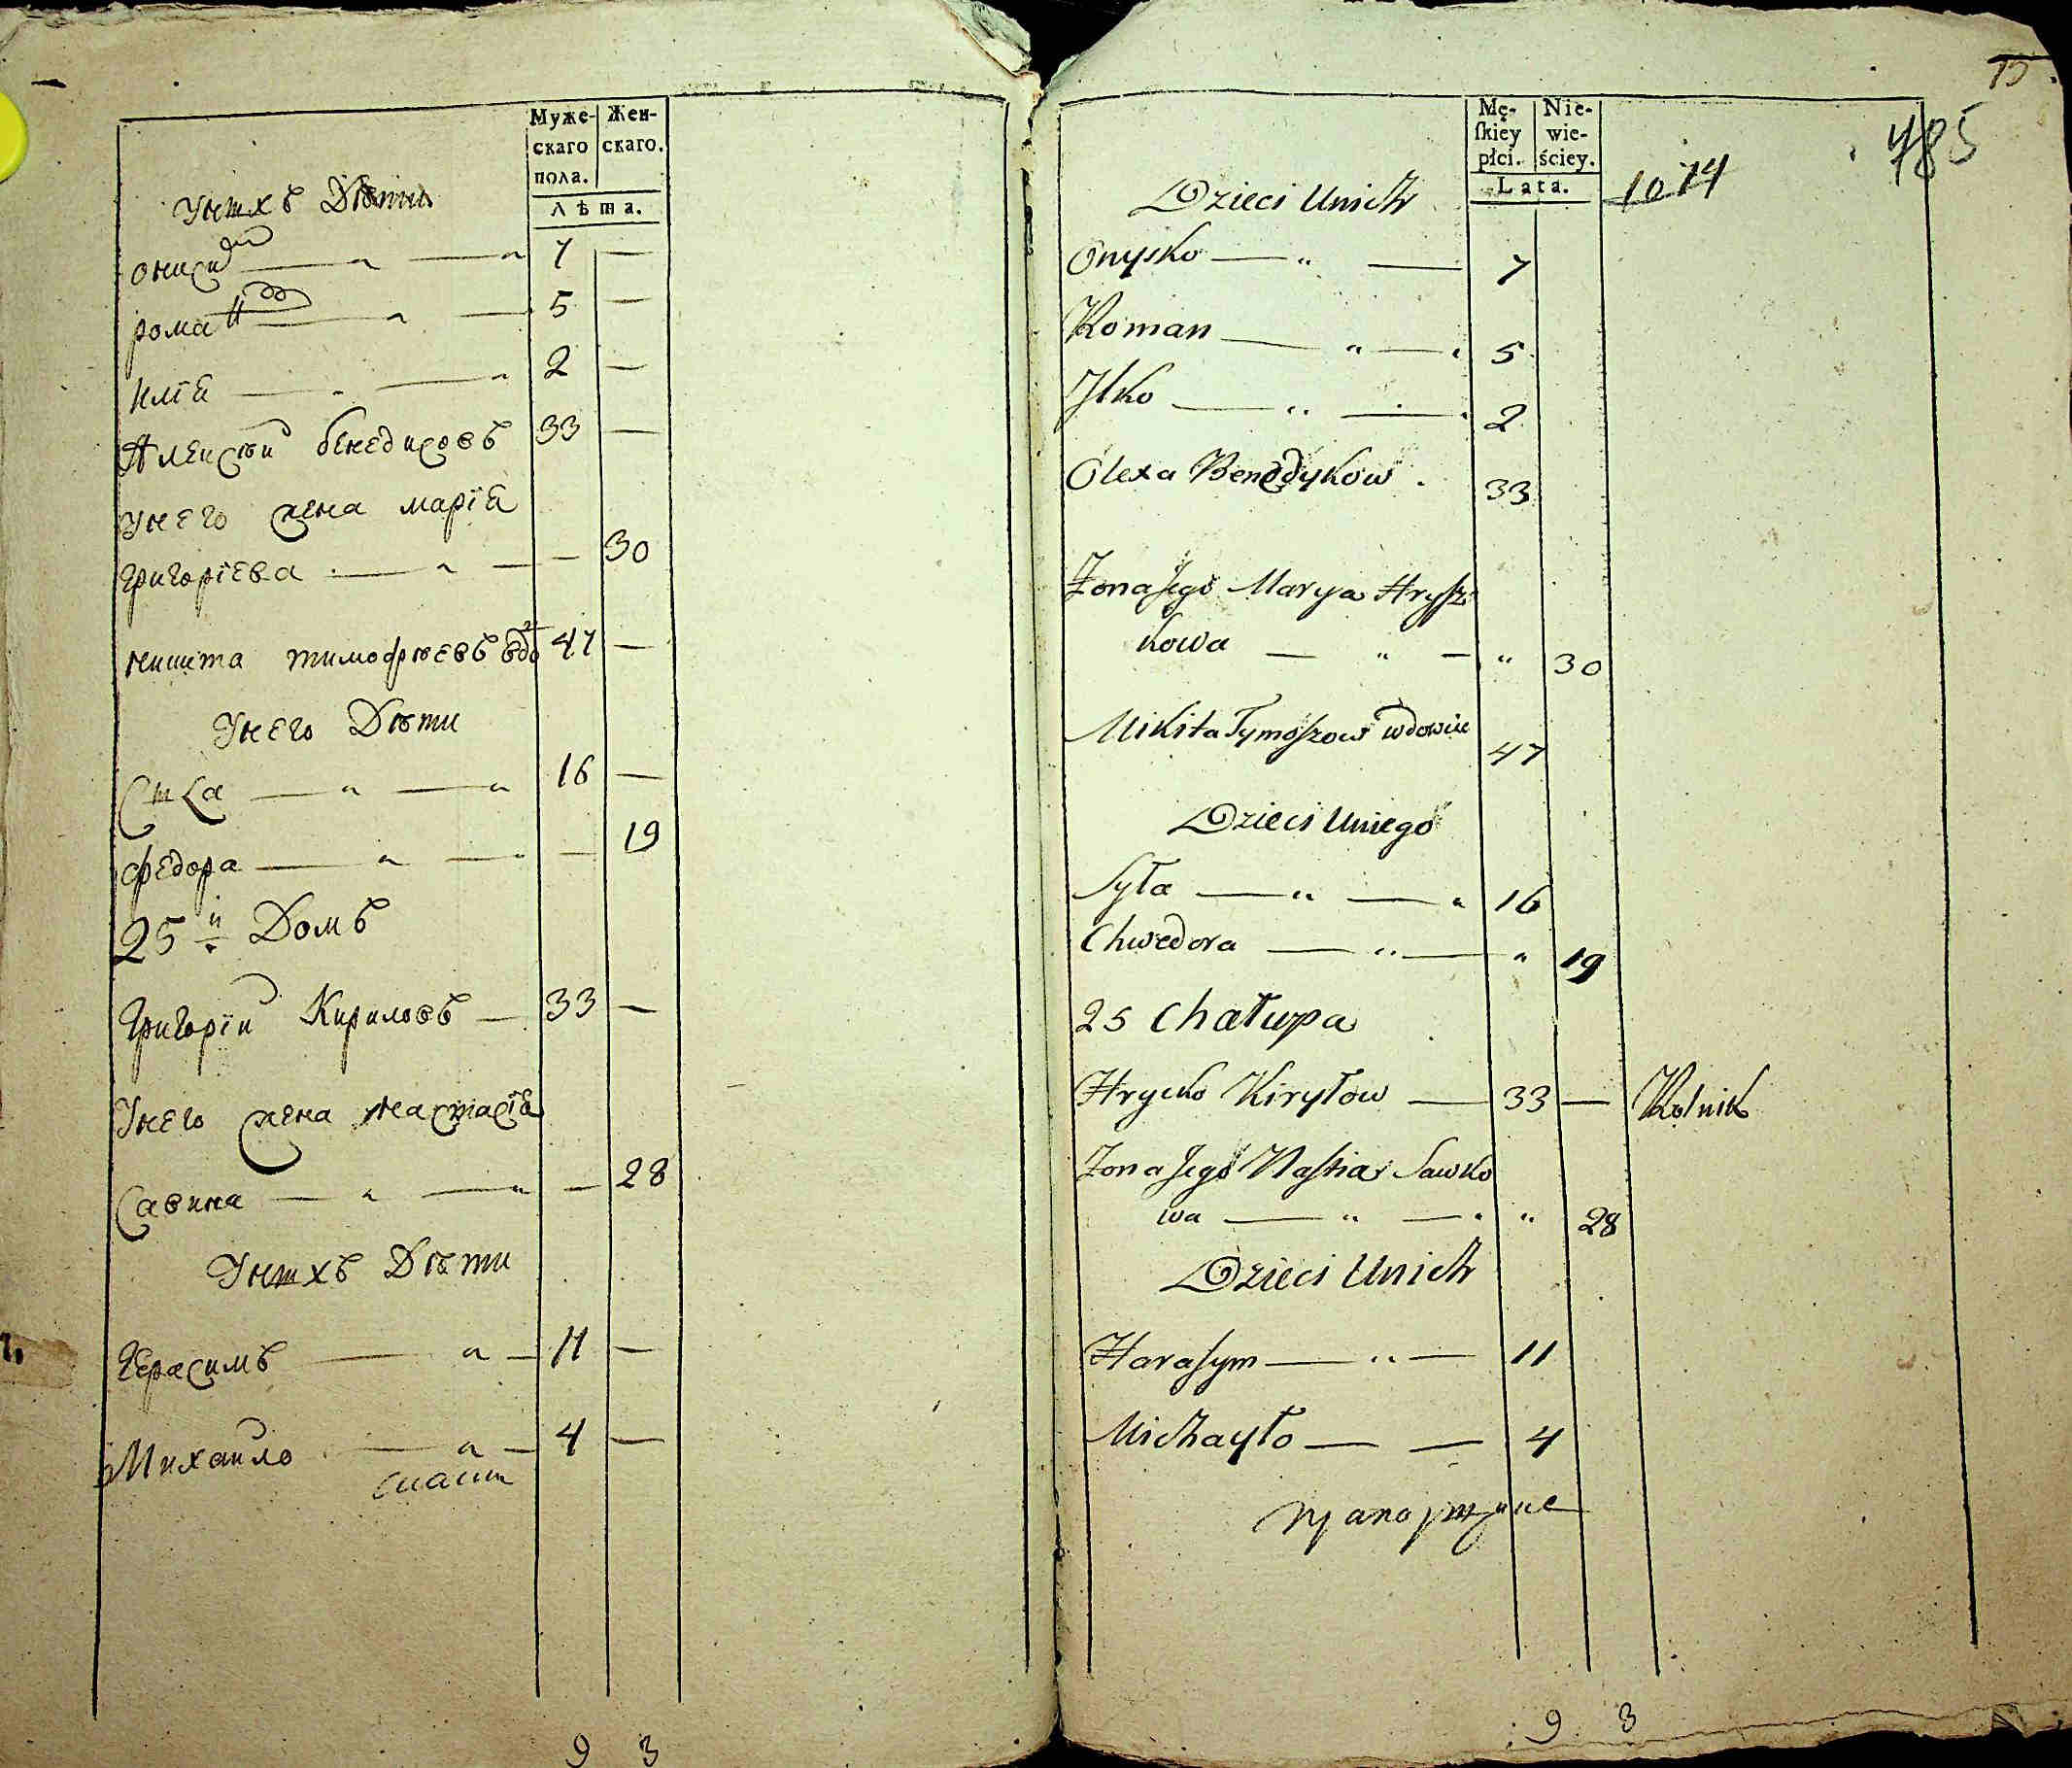 Муже- Жен-
скаго скаго.
пола.
Лѣта.
Унихъ Дѣти
онисим — " — " 7 —
роман — " — 5 —
илїа — " — " 2 —
Алексѣй бенедисовъ 33 —
Унего жена марїа
григорїева — " — — 30
никита тимофѣевъ вдо 47 —
Унего Дѣти
Сила — " — " 16 —
федора — " — — 19
25 й Домъ
Григорїи Кириловъ — 33 —
Унего жена Настасїа
Савина — " — " — 28
Унихъ Дѣти
Герасимъ — " — 11 —
Михаило — " — 4 —
9 3
15
485
1074
Mę- Nie-
ſkiey wie-
płci. ściey.
Lata.
Dzieci Unich
Onysko — " — 7
Roman — " — " 5
Jlko — " — " 2
Olexa Benedykow . 33
Zona Jego Marya Hryſz
kowa — " — " 30
Mikita Tymoſzow wdowiec 47
Dzieci Uniego
Syła — " — " 16
Chwedora — " — " 19
25 Chałupa
Hrycko Kiryłow — 33 — Rolnik
Zona Jego Naſtia Sawko
wa — " — " " 28
Dzieci Unich
Haraſym — " — 11
Michayło — — 4
9 3